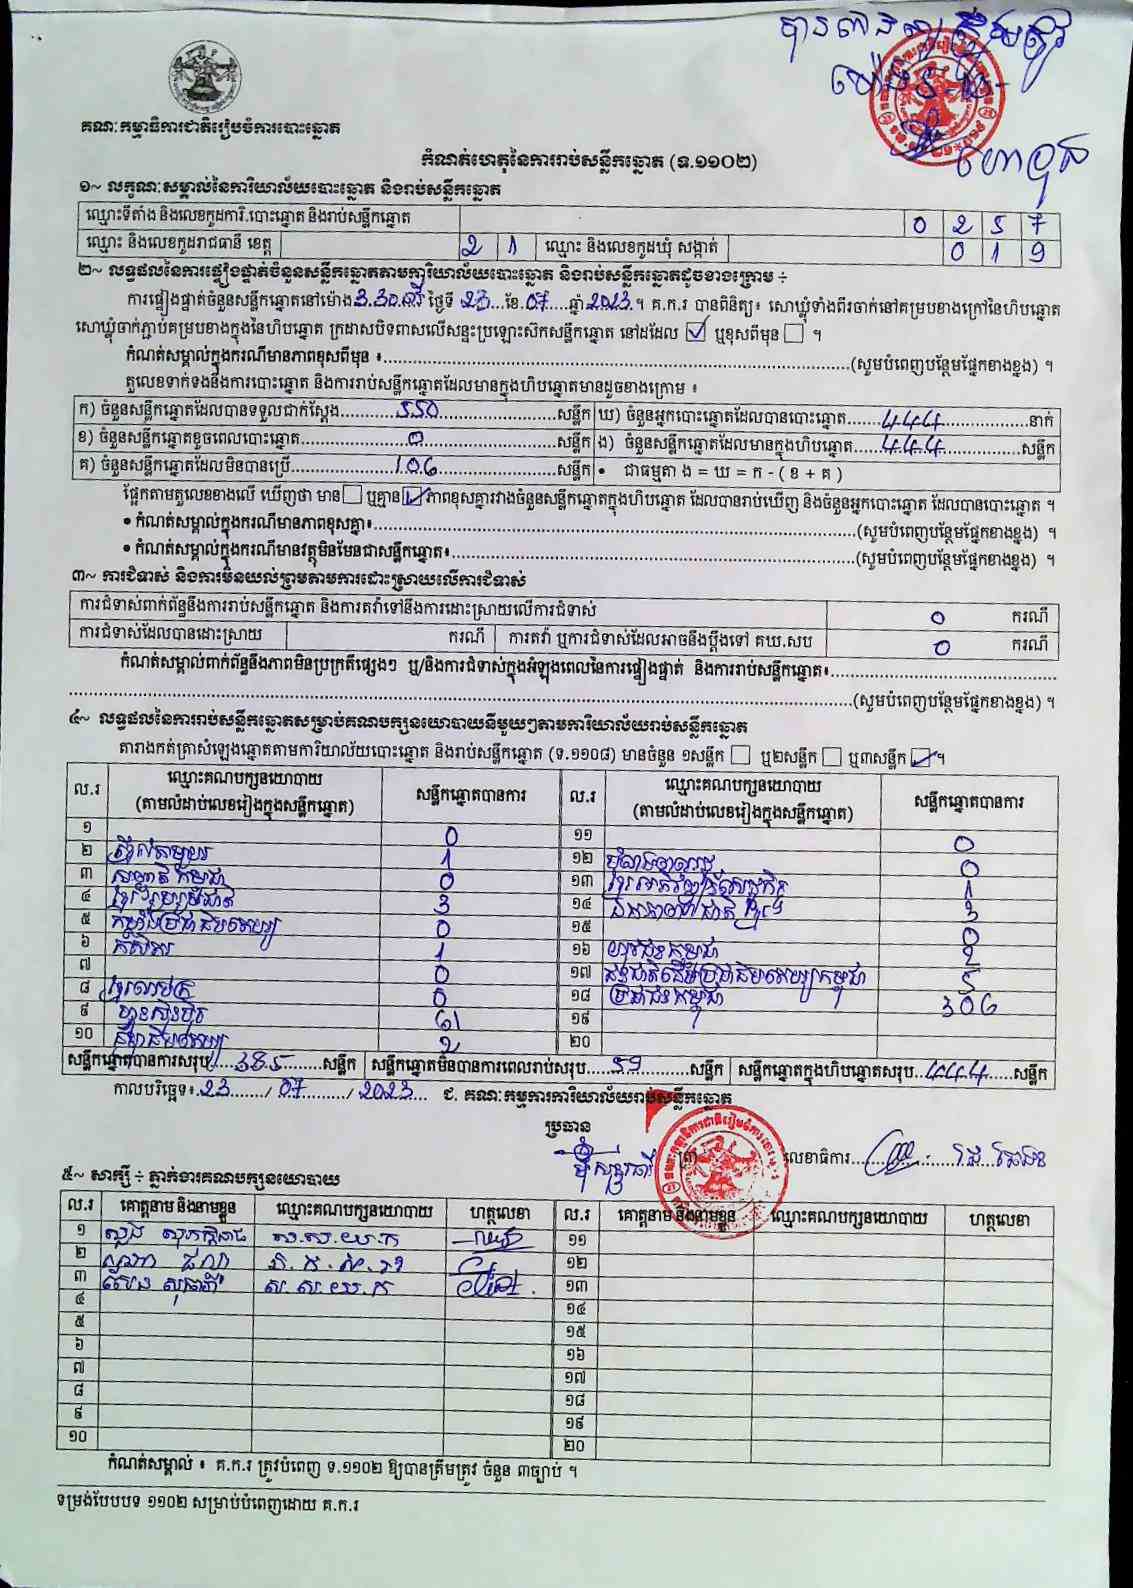 គណៈកម្មាធិការជាតិរៀបចំការបោះឆ្នោត
កំណត់ហេតុនៃការរាប់សន្លឹកឆ្នោត (ទ.១១០២)
១~ លក្ខណៈសម្គាល់នៃការិយាល័យបោះឆ្នោត និងរាប់សន្លឹកឆ្នោត
ឈ្មោះទីតាំង និងលេខកូដការិ.បោះឆ្នោត និងរាប់សន្លឹកឆ្នោត 0 2 5 7
ឈ្មោះ និងលេខកូដរាជធានី ខេត្ត 2 1 ឈ្មោះ និងលេខកូដឃុំ សង្កាត់ 0 1 9
២~ លទ្ធផលនៃការផ្ទៀងផ្ទាត់ចំនួនសន្លឹកឆ្នោតតាមការិយាល័យបោះឆ្នោត និងរាប់សន្លឹកឆ្នោតដូចខាងក្រោម ÷
ការផ្ទៀងផ្ទាត់ចំនួនសន្លឹកឆ្នោតនៅម៉ោង 3.30 ថ្ងៃទី 23 ខែ 07 ឆ្នាំ 2023 ។ គ.ក.រ បានពិនិត្យ៖ សោឃ្លុំទាំងពីរចាក់នៅគម្របខាងក្រៅនៃហិបឆ្នោត
សោឃ្លុំចាក់ភ្ជាប់គម្របខាងក្នុងនៃហិបឆ្នោត ក្រដាសបិទពាសលើសន្ទះប្រឡោះស៊កសន្លឹកឆ្នោត នៅដដែល ☑ ឬខុសពីមុន ☐ ។
កំណត់សម្គាល់ក្នុងករណីមានភាពខុសពីមុន ៖..........(សូមបំពេញបន្ថែមផ្នែកខាងខ្នង) ។
តួលេខទាក់ទងនឹងការបោះឆ្នោត និងការរាប់សន្លឹកឆ្នោតដែលមានក្នុងហិបឆ្នោតមានដូចខាងក្រោម ៖
ក) ចំនួនសន្លឹកឆ្នោតដែលបានទទួលជាក់ស្តែង..........550..........សន្លឹក ឃ) ចំនួនអ្នកបោះឆ្នោតដែលបានបោះឆ្នោត......444..........នាក់
ខ) ចំនួនសន្លឹកឆ្នោតខូចពេលបោះឆ្នោត..........0..........សន្លឹក ង) ចំនួនសន្លឹកឆ្នោតដែលមានក្នុងហិបឆ្នោត......444..........សន្លឹក
គ) ចំនួនសន្លឹកឆ្នោតដែលមិនបានប្រើ..........106..........សន្លឹក • ជាធម្មតា ង = ឃ = ក - ( ខ + គ )
ផ្អែកតាមតួលេខខាងលើ ឃើញថា មាន ☐ ឬគ្មាន ☑ ភាពខុសគ្នារវាងចំនួនសន្លឹកឆ្នោតក្នុងហិបឆ្នោត ដែលបានរាប់ឃើញ និងចំនួនអ្នកបោះឆ្នោត ដែលបានបោះឆ្នោត ។
• កំណត់សម្គាល់ក្នុងករណីមានភាពខុសគ្នា៖..........(សូមបំពេញបន្ថែមផ្នែកខាងខ្នង) ។
• កំណត់សម្គាល់ក្នុងករណីមានវត្ថុមិនមែនជាសន្លឹកឆ្នោត៖..........(សូមបំពេញបន្ថែមផ្នែកខាងខ្នង) ។
៣~ ការជំទាស់ និងការមិនយល់ព្រមតាមការដោះស្រាយលើការជំទាស់
ការជំទាស់ពាក់ព័ន្ធនឹងការរាប់សន្លឹកឆ្នោត និងការតវ៉ាទៅនឹងការដោះស្រាយលើការជំទាស់ 0 ករណី
ការជំទាស់ដែលបានដោះស្រាយ ករណី ការតវ៉ា ឬការជំទាស់ដែលអាចនឹងប្តឹងទៅ គឃ.សប 0 ករណី
កំណត់សម្គាល់ពាក់ព័ន្ធនឹងភាពមិនប្រក្រតីផ្សេងៗ ឬ/និងការជំទាស់ក្នុងអំឡុងពេលនៃការផ្ទៀងផ្ទាត់ និងការរាប់សន្លឹកឆ្នោត៖..........
..........(សូមបំពេញបន្ថែមផ្នែកខាងខ្នង) ។
៤~ លទ្ធផលនៃការរាប់សន្លឹកឆ្នោតសម្រាប់គណបក្សនយោបាយនីមួយៗតាមការិយាល័យរាប់សន្លឹកឆ្នោត
តារាងកត់ត្រាសំឡេងឆ្នោតតាមការិយាល័យបោះឆ្នោត និងរាប់សន្លឹកឆ្នោត (ទ.១១០៨) មានចំនួន ១សន្លឹក ☐ ឬ២សន្លឹក ☐ ឬ៣សន្លឹក ☑ ។
ល.រ ឈ្មោះគណបក្សនយោបាយ (តាមលំដាប់លេខរៀងក្នុងសន្លឹកឆ្នោត) សន្លឹកឆ្នោតបានការ ល.រ ឈ្មោះគណបក្សនយោបាយ (តាមលំដាប់លេខរៀងក្នុងសន្លឹកឆ្នោត) សន្លឹកឆ្នោតបានការ
១ 0 ១១ 0
២ 1 ១២ 0
៣ 0 ១៣ 1
៤ 3 ១៤ 3
៥ 0 ១៥ 0
៦ កសិករ 1 ១៦ យុវជនកម្ពុជា 2
៧ 0 ១៧ ជនជាតិដើមប្រជាធិបតេយ្យកម្ពុជា 5
៨ 0 ១៨ ប្រជាជនកម្ពុជា 306
៩ ហ្វ៊ុនស៊ិនប៉ិច 61 ១៩
១០ 2 ២០
សន្លឹកឆ្នោតបានការសរុប....385........សន្លឹក សន្លឹកឆ្នោតមិនបានការពេលរាប់សរុប....59........សន្លឹក សន្លឹកឆ្នោតក្នុងហិបឆ្នោតសរុប..444....សន្លឹក
កាលបរិច្ឆេទ៖ 23 / 07 / 2023 ជ. គណៈកម្មការការិយាល័យរាប់សន្លឹកឆ្នោត
ប្រធាន
លេខាធិការ
៥~ សាក្សី ÷ ភ្នាក់ងារគណបក្សនយោបាយ
ល.រ គោត្តនាម និងនាមខ្លួន ឈ្មោះគណបក្សនយោបាយ ហត្ថលេខា ល.រ គោត្តនាម និងនាមខ្លួន ឈ្មោះគណបក្សនយោបាយ ហត្ថលេខា
១ ស.ស.យ.ក ១១
២ ១២
៣ ស.ស.យ.ក ១៣
៤ ១៤
៥ ១៥
៦ ១៦
៧ ១៧
៨ ១៨
៩ ១៩
១០ ២០
កំណត់សម្គាល់ ៖ គ.ក.រ ត្រូវបំពេញ ទ.១១០២ ឱ្យបានត្រឹមត្រូវ ចំនួន ៣ច្បាប់ ។
ទម្រង់បែបបទ ១១០២ សម្រាប់បំពេញដោយ គ.ក.រ